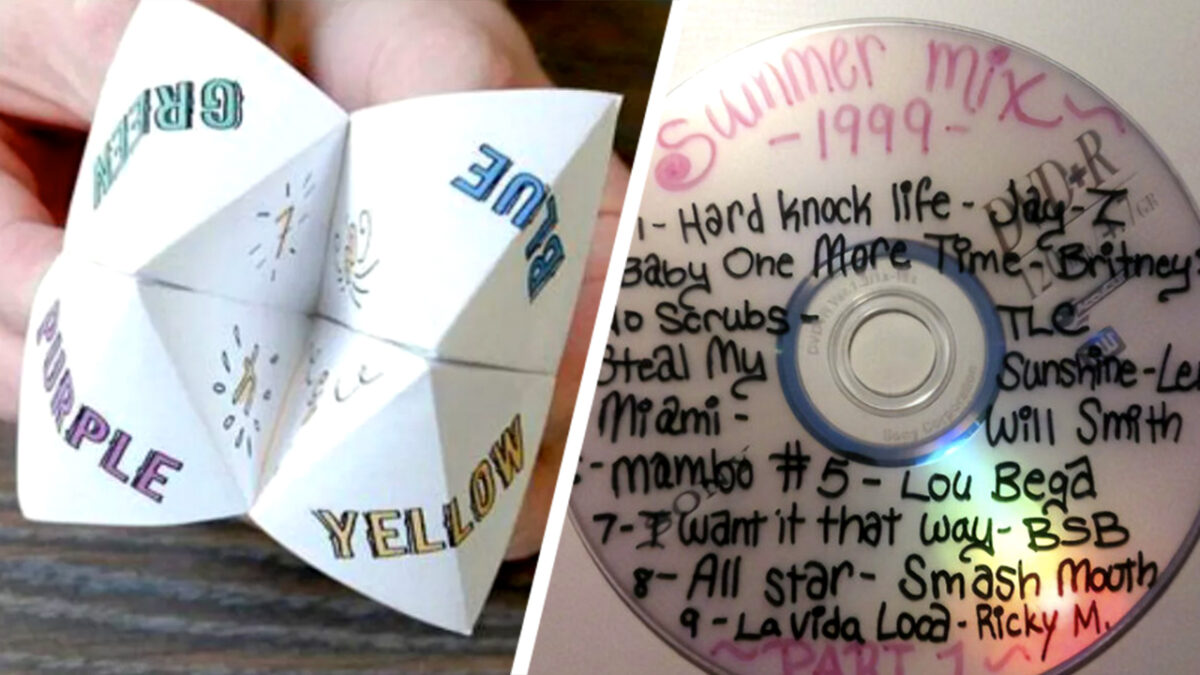 GREEN
BLUE
PURPLE
YELLOW
Summer mix
-1999-
1- Hard knock life - Jay-Z
Baby One More Time - Britney
No Scrubs - TLC
Steal My Sunshine - Len
Miami - Will Smith
- mambo #5 - Lou Bega
7- I want it that way - BSB
8- All star - Smash Mouth
9 - La vida Loca - Ricky M.
~PART 1~
DVD+R
Sony Corporation